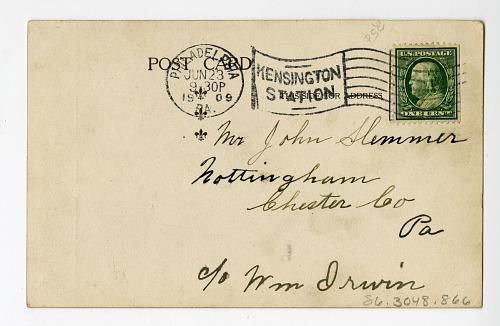 POST CARD
PHILADELPHIA
JUN 23
9.30P
1909
PA.
KENSINGTON
STATION
FOR ADDRESS
U.S. POSTAGE
ONE CENT
Mr John Slemmer
Nottingham
Chester Co
Pa
c/o Wm Irwin
86.3048.866